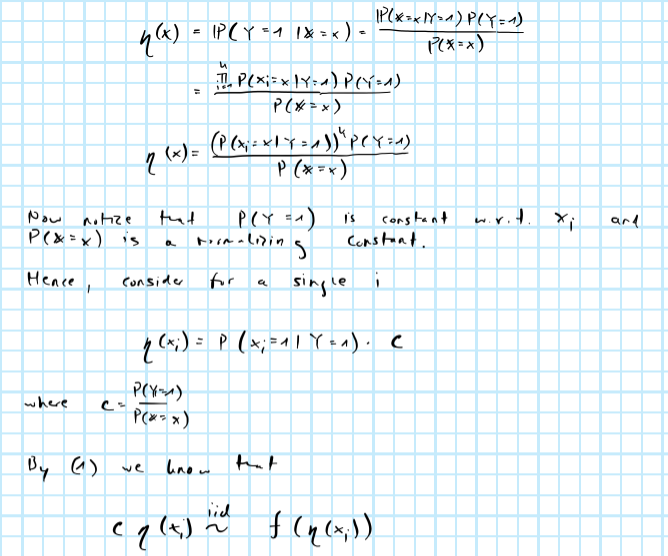 η(x) = P(Y=1 | X=x) = P(X=x|Y=1) P(Y=1) / P(X=x)
= ∏_{i=1}^{4} P(x_i=x|Y=1) P(Y=1) / P(X=x)
η(x) = (P(x_i=x|Y=1))^4 P(Y=1) / P(X=x)
Now notize that P(Y=1) is constant w.r.t. x_i and
P(X=x) is a normalizing constant.
Hence, consider for a single i
η(x_i) = P(x_i=1|Y=1) · c
where c = P(Y=1) / P(X=x)
By (1) we know that
c η(x_i) iid ~ f(η(x_i))